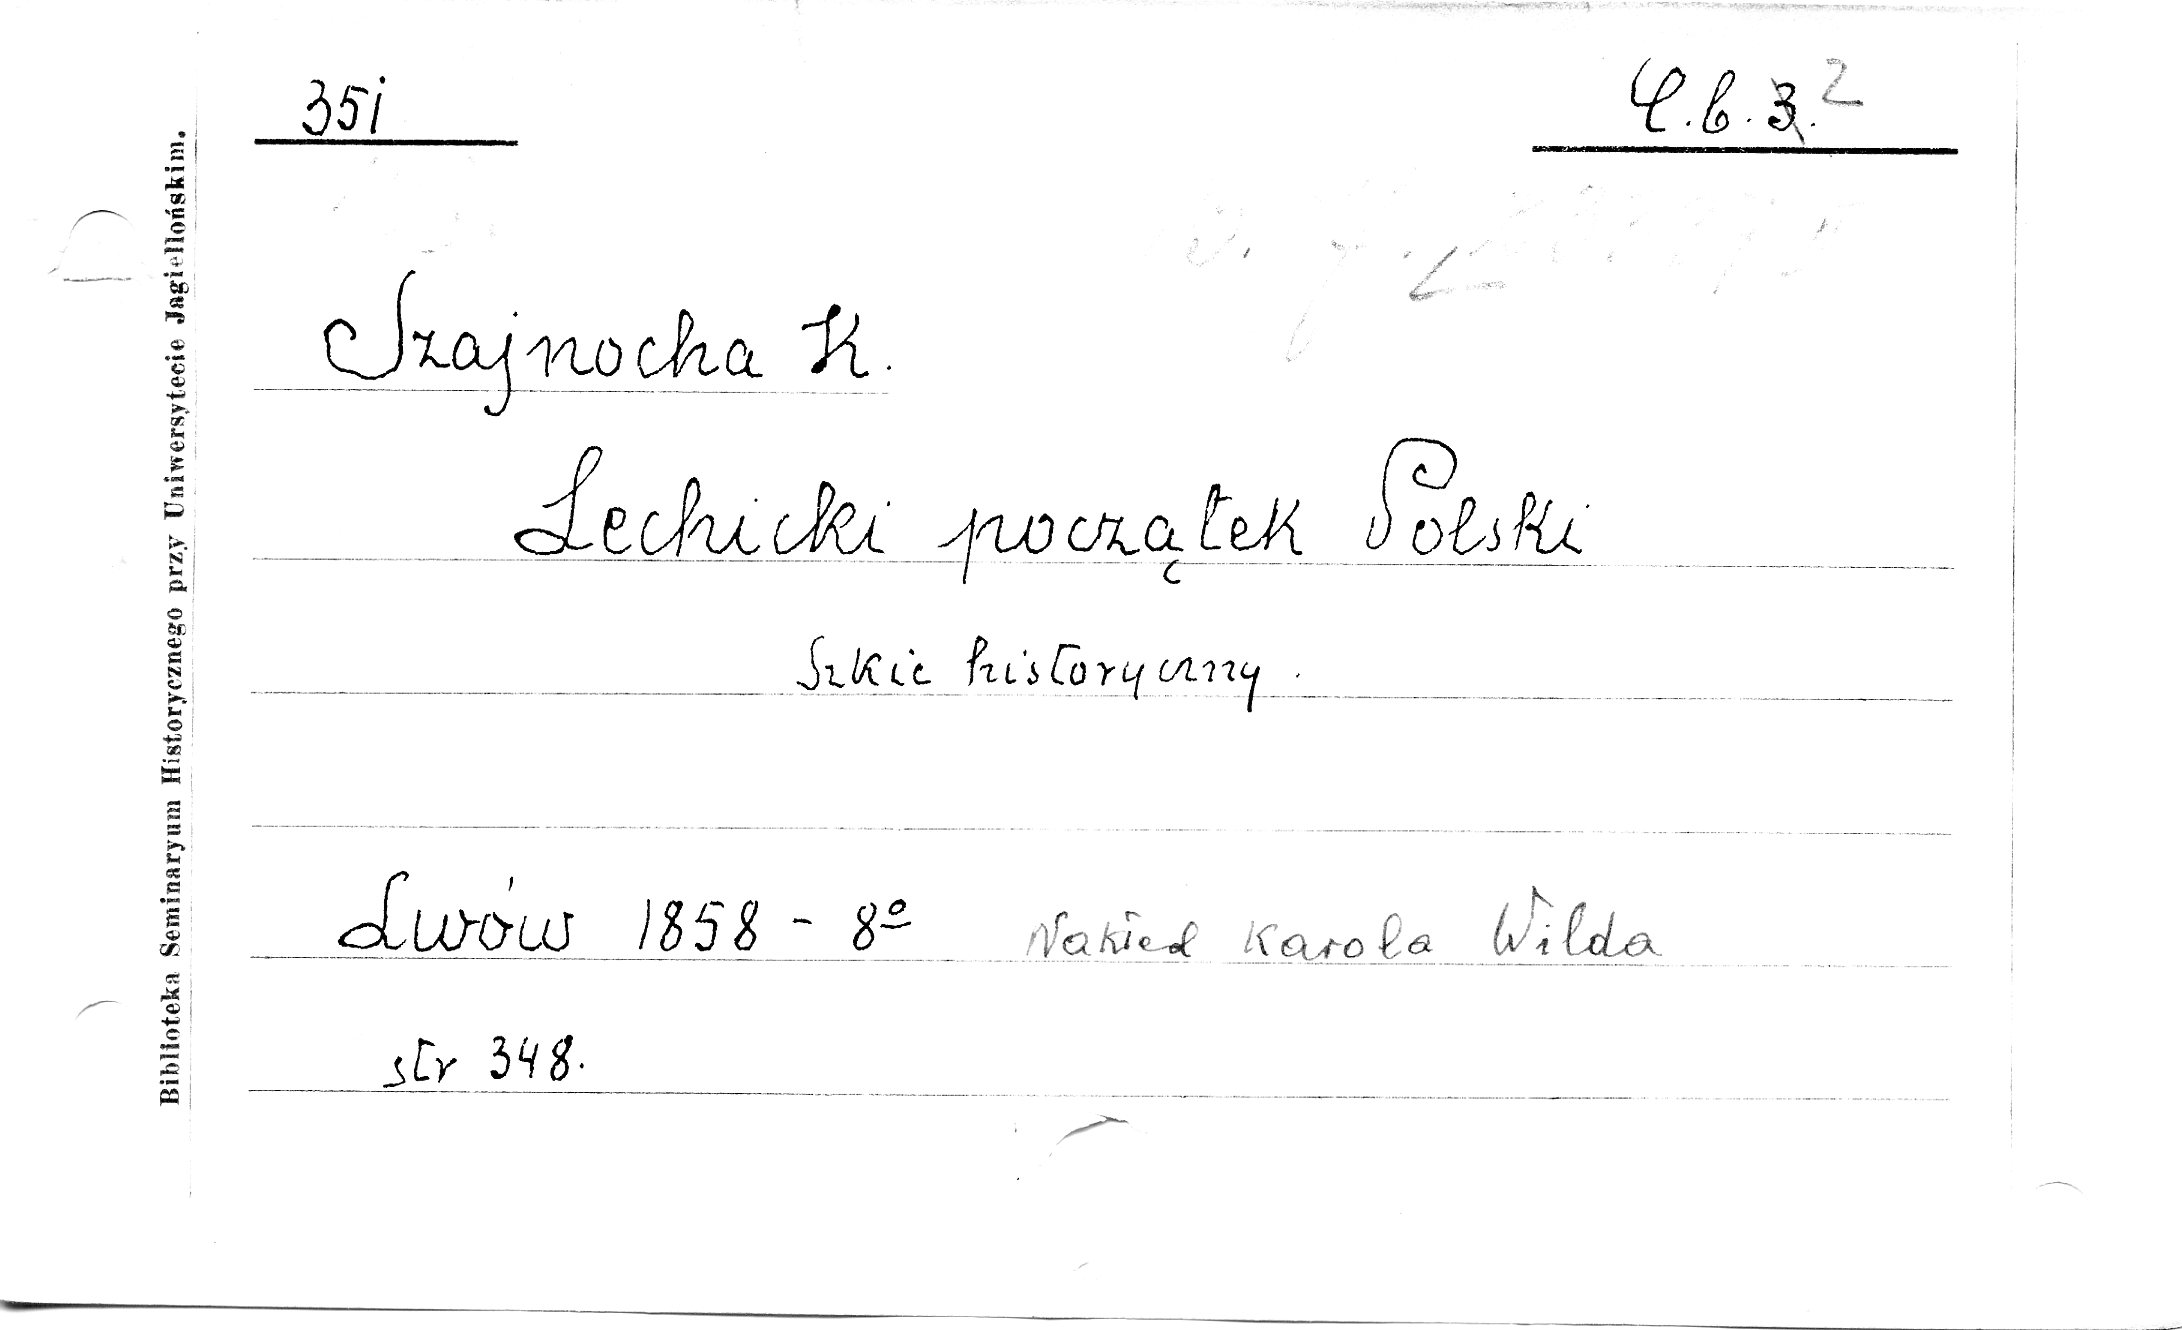 35i
C.b.3. 2
Szajnocha K.
Lechicki początek Polski
Szkic historyczny.
Lwów 1858 - 8º Nakład Karola Wilda
str 348.
Biblioteka Seminaryum Historycznego przy Uniwersytecie Jagiellońskim.